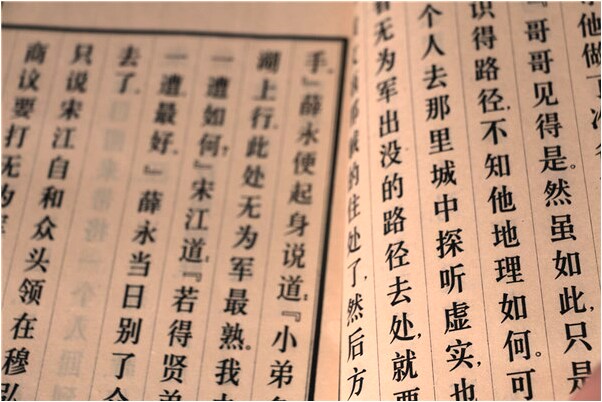 他做
『哥哥见得是。然虽如此,只是
识得路径,不知他地理如何。可
个人去那里城中探听虚实,也
看无为军出没的路径去处,就要
的住处了,然后方
手。』薛永便起身说道:『小弟多
湖上行,此处无为军最熟。我去
一遭如何?』宋江道:『若得贤弟
一遭最好。』薛永当日别了众
去了。
只说宋江自和众头领在穆弘
商议要打无为军